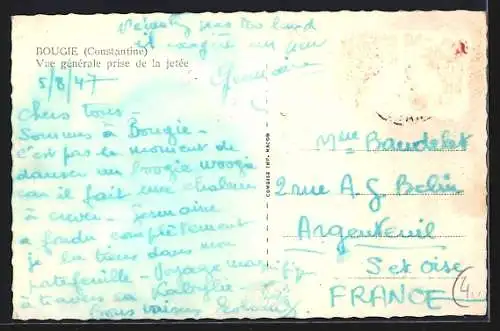 BOUGIE (Constantine)
Vue générale prise de la jetée
5/8/47
pas trop chaud
il souffle un peu
Germaine
Chers tous -
Sommes à Bougie -
c'est pas le moment de
danser un boogie woogie
car il fait une chaleur
à crever - Germaine
a fondu complètement
je la tiens dans mon
portefeuille - Voyage magnifique
à travers la Kabylie -
Bons baisers
COMBIER IMP. MACON
Mme Baudelet
2 rue A. G. Belin
Argenteuil
S et Oise
FRANCE
4